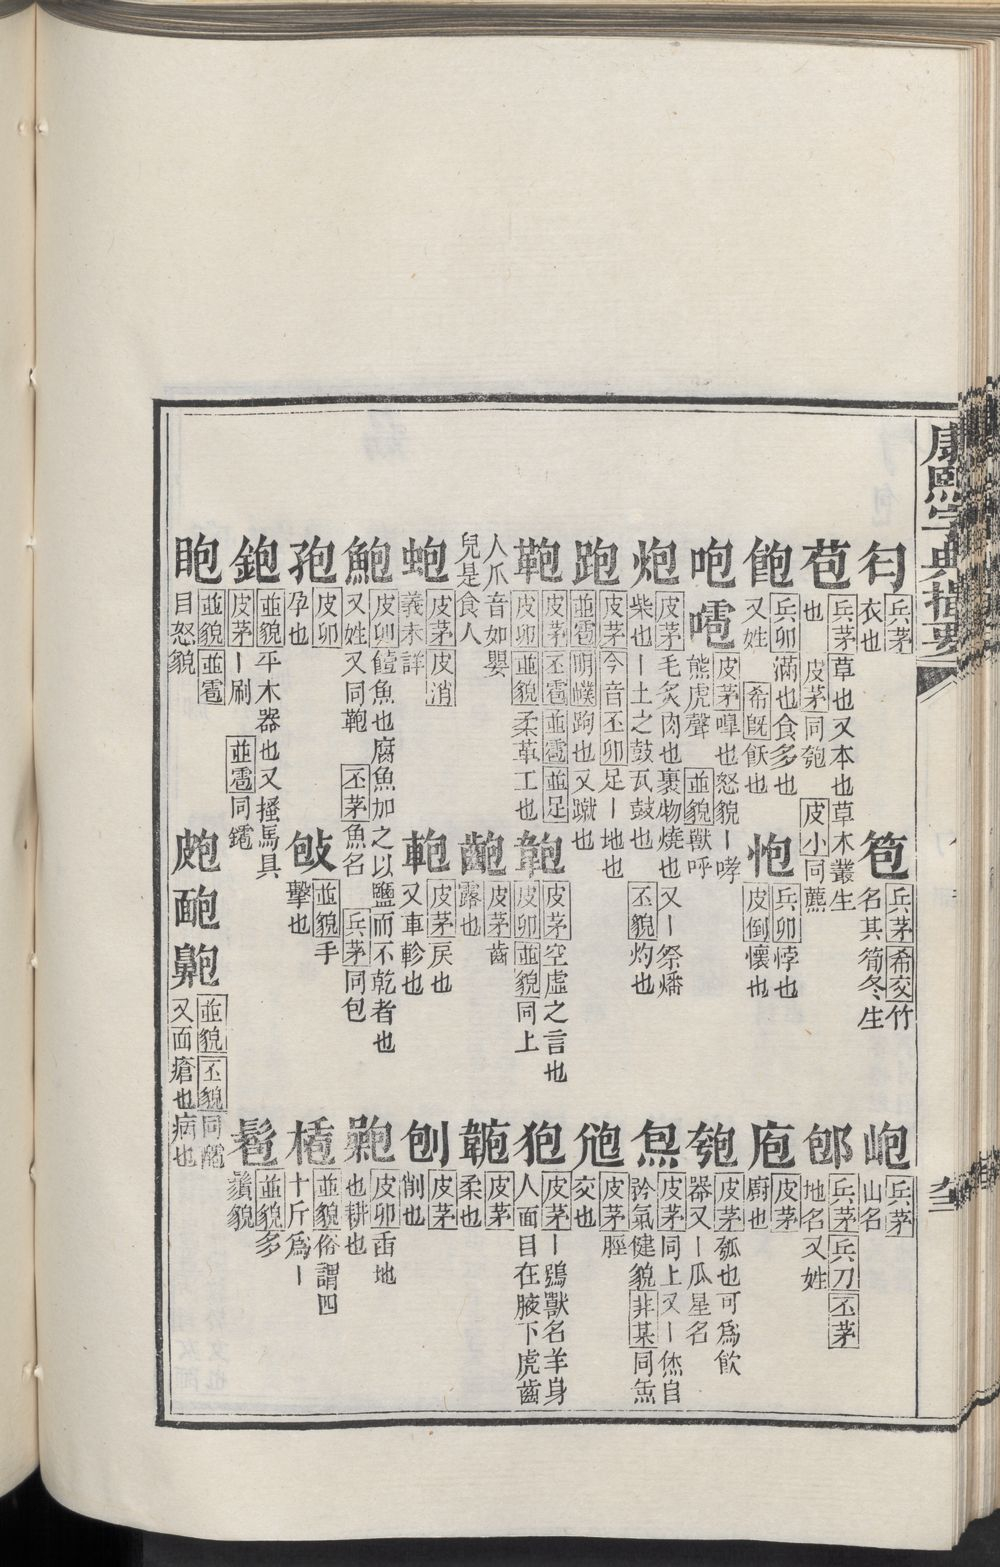 康熙字典指要
袀 兵茅 衣也 笣 兵茅 希交 竹名其筍冬生 岶 兵茅 山名
苞 兵茅 草也又本也草木叢生也 皮茅 同匏 皮小 同藨 郇 兵茅 兵刀 丕茅 地名又姓
飽 兵卯 滿也食多也又姓 希旣 飫也 怉 兵卯 悖也 皮倒 懷也 庖 皮茅 廚也
咆 嚆 皮茅 嘷也怒貌丨哮熊虎聲 並貌 獸呼 匏 皮茅 瓠也可爲飮器又丨瓜星名
炮 皮茅 毛炙肉也裹物燒也又丨祭燔柴也丨土之鼓瓦鼓也 丕貌 灼也 炰 皮茅 同上又丨烋自矜氣健貌 非某 同缹
跑 皮茅 今音 丕卯 足丨地也 並雹 明㠓 跔也又蹴也 皮茅 脛交也
鞄 皮茅 丕雹 並雹 並足 皮卯 並貌 柔革工也 皮茅 空虛之言也 皮卯 並貌 同上 狍 皮茅 丨鴞獸名羊身人面目在腋下虎齒
人爪音如嬰兒是食人 齙 皮茅 齒露也 皮茅 柔也
蚫 皮茅 皮消 義未詳 軳 皮茅 戾也又車軫也 刨 皮茅 削也
鮑 皮卯 饐魚也腐魚加之以鹽而不乾者也又姓又同鞄 丕茅 魚名 兵茅 同包 皮卯 臿地也耕也
孢 皮卯 孕也 㲏 並貌 手擊也 並貌 俗謂四十斤爲丨
鉋 並貌 平木器也又搔馬具 皮茅 丨刷 並雹 同鑤 髱 並貌 多鬚貌
䀝 並貌 並雹 目怒貌 皰 靤 鼥 並貌 丕貌 又面瘡也病也